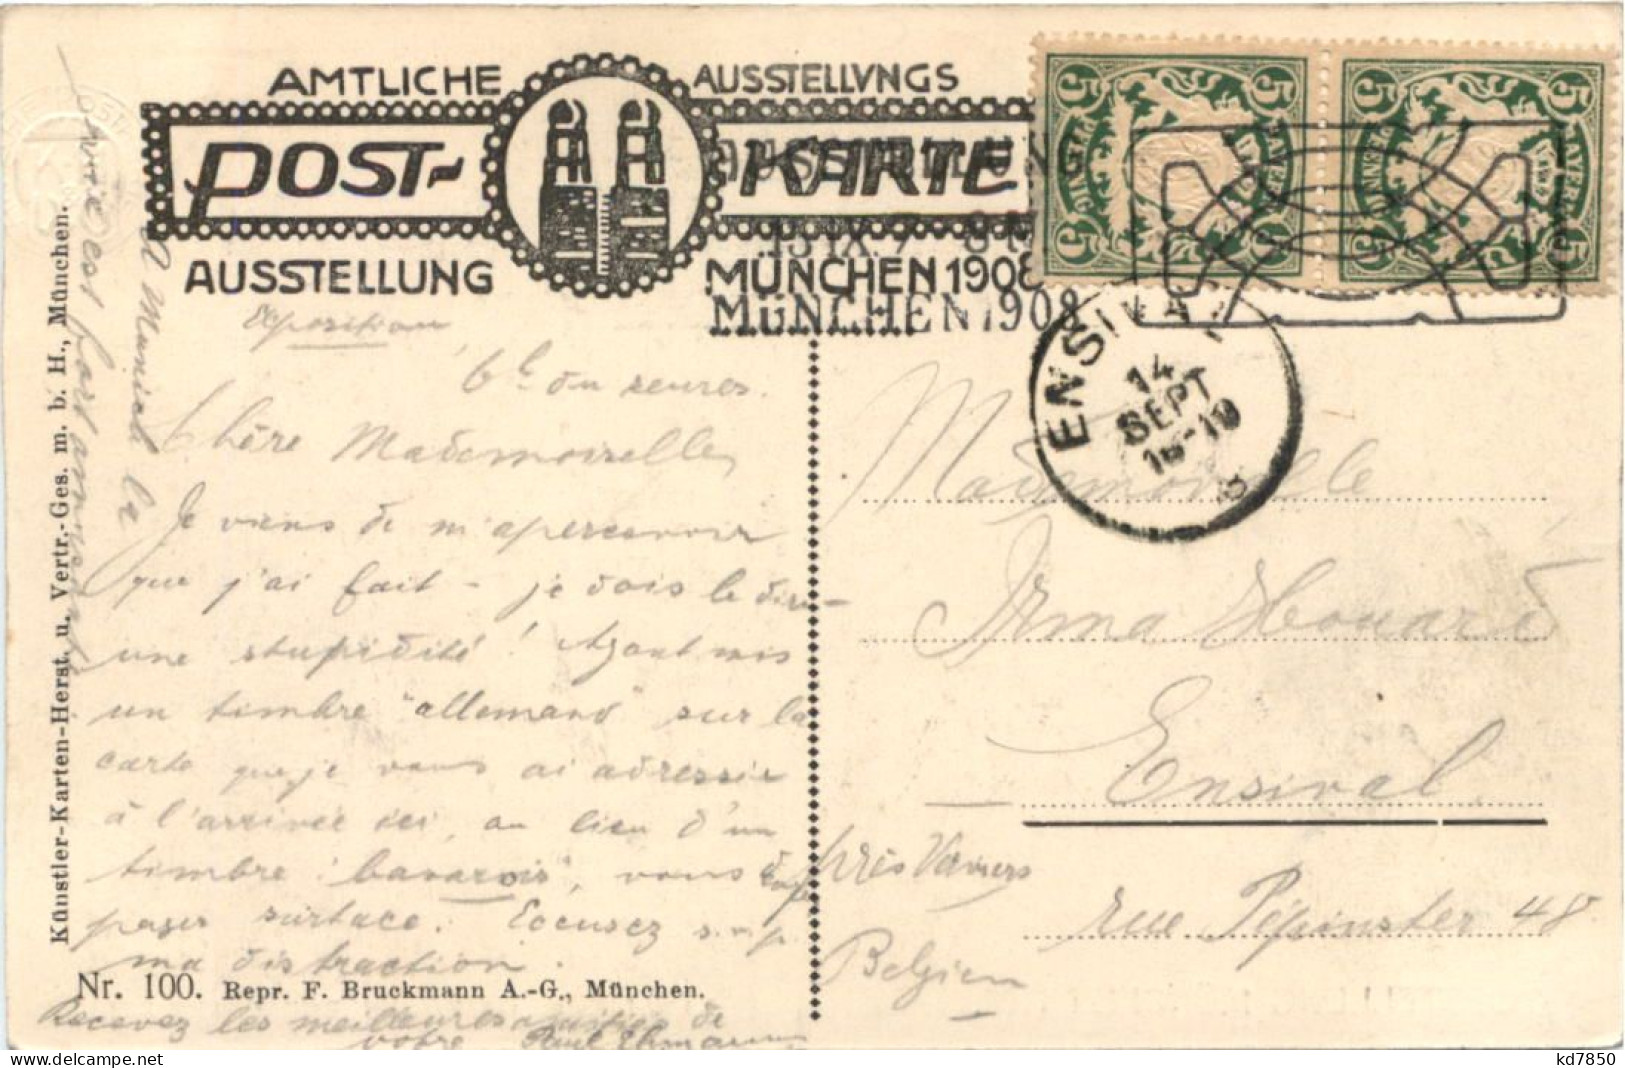 AMTLICHE AUSSTELLVNGS
POST- KARTE
AUSSTELLUNG MÜNCHEN 1908
MÜNCHEN 1908
5 5 5 5
BAYERN
PFENNIG
ENSIVAL
14
SEPT
Exposition
Chère Mademoiselle,
Je viens de m'apercevoir
que j'ai fait - je dois le dire -
une stupidité! Ayant mis
un timbre "allemand" sur la
carte que je vous ai adressée
à l'arrivée ici, au lieu d'un
timbre bavarois, vous
payer surtaxe. Excusez s.v.p.
ma distraction.
Recevez les meilleures amitiés de
votre Paul
Munich la
est fort
Mademoiselle
Irma Houard
Ensival
près Verviers
rue Pépinster 48
Belgien
Künstler-Karten-Herst. u. Vertr.-Ges. m. b. H., München.
Nr. 100. Repr. F. Bruckmann A.-G., München.
kd7850